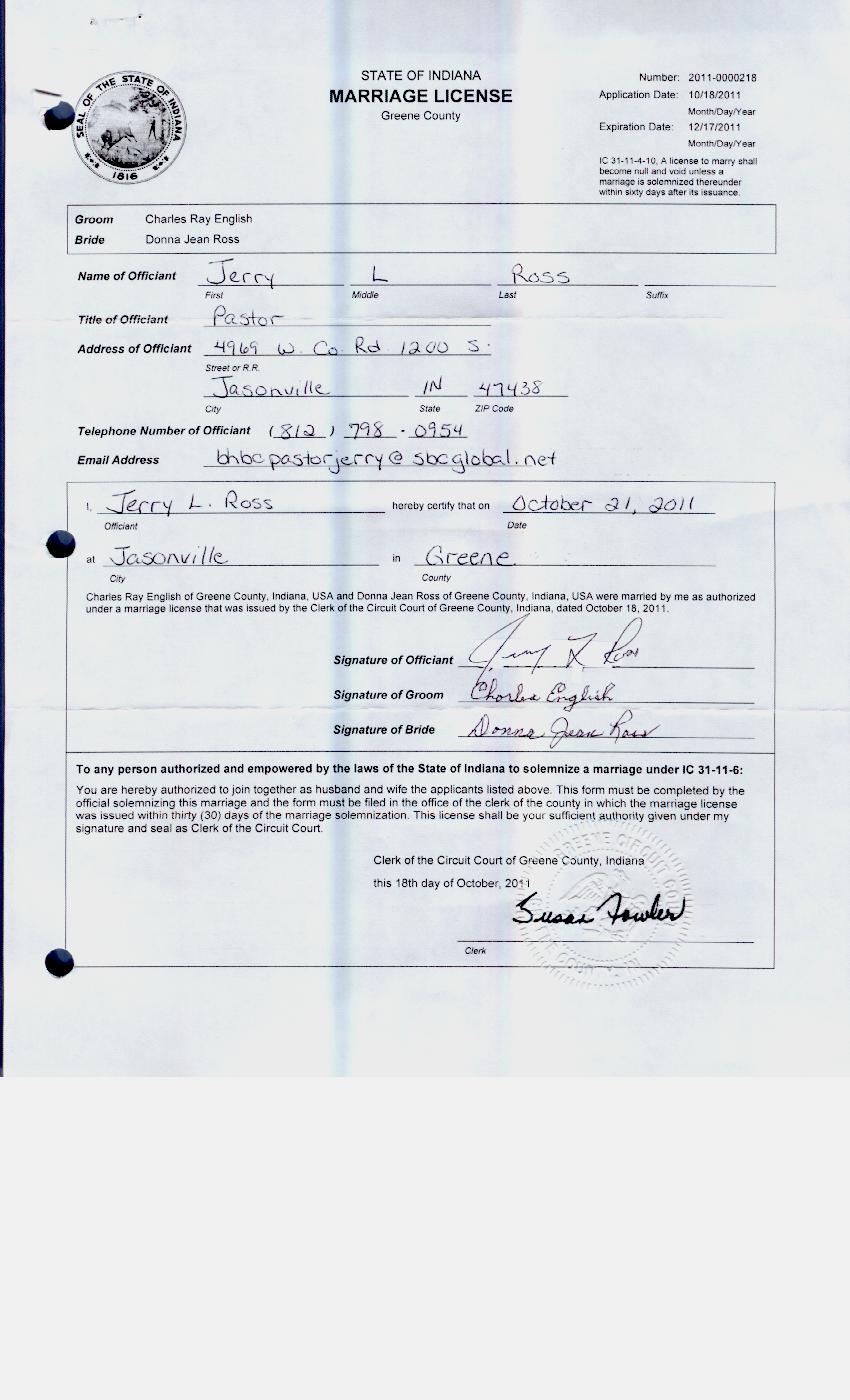 SEAL OF THE STATE OF INDIANA
1816
STATE OF INDIANA
MARRIAGE LICENSE
Greene County
Number: 2011-0000218
Application Date: 10/18/2011
Month/Day/Year
Expiration Date: 12/17/2011
Month/Day/Year
IC 31-11-4-10, A license to marry shall
become null and void unless a
marriage is solemnized thereunder
within sixty days after its issuance.
Groom Charles Ray English
Bride Donna Jean Ross
Name of Officiant Jerry L Ross
First Middle Last Suffix
Title of Officiant Pastor
Address of Officiant 4969 W. Co. Rd. 1200 S.
Street or R.R.
Jasonville IN 47438
City State ZIP Code
Telephone Number of Officiant (812) 798 - 0954
Email Address bhbcpastorjerry@sbcglobal.net
I, Jerry L. Ross hereby certify that on October 21, 2011
Officiant Date
at Jasonville in Greene
City County
Charles Ray English of Greene County, Indiana, USA and Donna Jean Ross of Greene County, Indiana, USA were married by me as authorized
under a marriage license that was issued by the Clerk of the Circuit Court of Greene County, Indiana, dated October 18, 2011.
Signature of Officiant Jerry L Ross
Signature of Groom Charles English
Signature of Bride Donna Jean Ross
To any person authorized and empowered by the laws of the State of Indiana to solemnize a marriage under IC 31-11-6:
You are hereby authorized to join together as husband and wife the applicants listed above. This form must be completed by the
official solemnizing this marriage and the form must be filed in the office of the clerk of the county in which the marriage license
was issued within thirty (30) days of the marriage solemnization. This license shall be your sufficient authority given under my
signature and seal as Clerk of the Circuit Court.
Clerk of the Circuit Court of Greene County, Indiana
this 18th day of October, 2011
Susan Fowler
Clerk
GREENE CIRCUIT